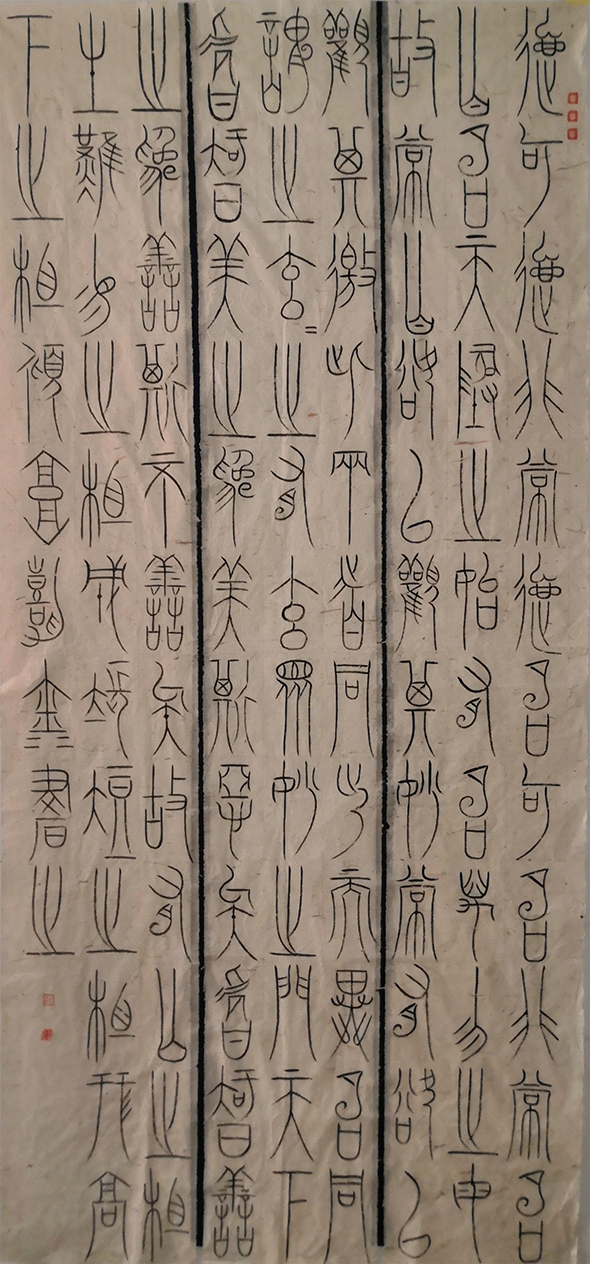 道可道非常道名可名非常名
亡名天地之始有名萬勿之母
故常亡欲以觀其妙常有欲以
觀其徼此兩者同出而異名同
謂之玄=之有玄眾妙之門天下
皆智美之為美斯惡矣皆智善
之為善斯不善矣故有亡之相
生難易之相成長短之相形高
下之相傾書之